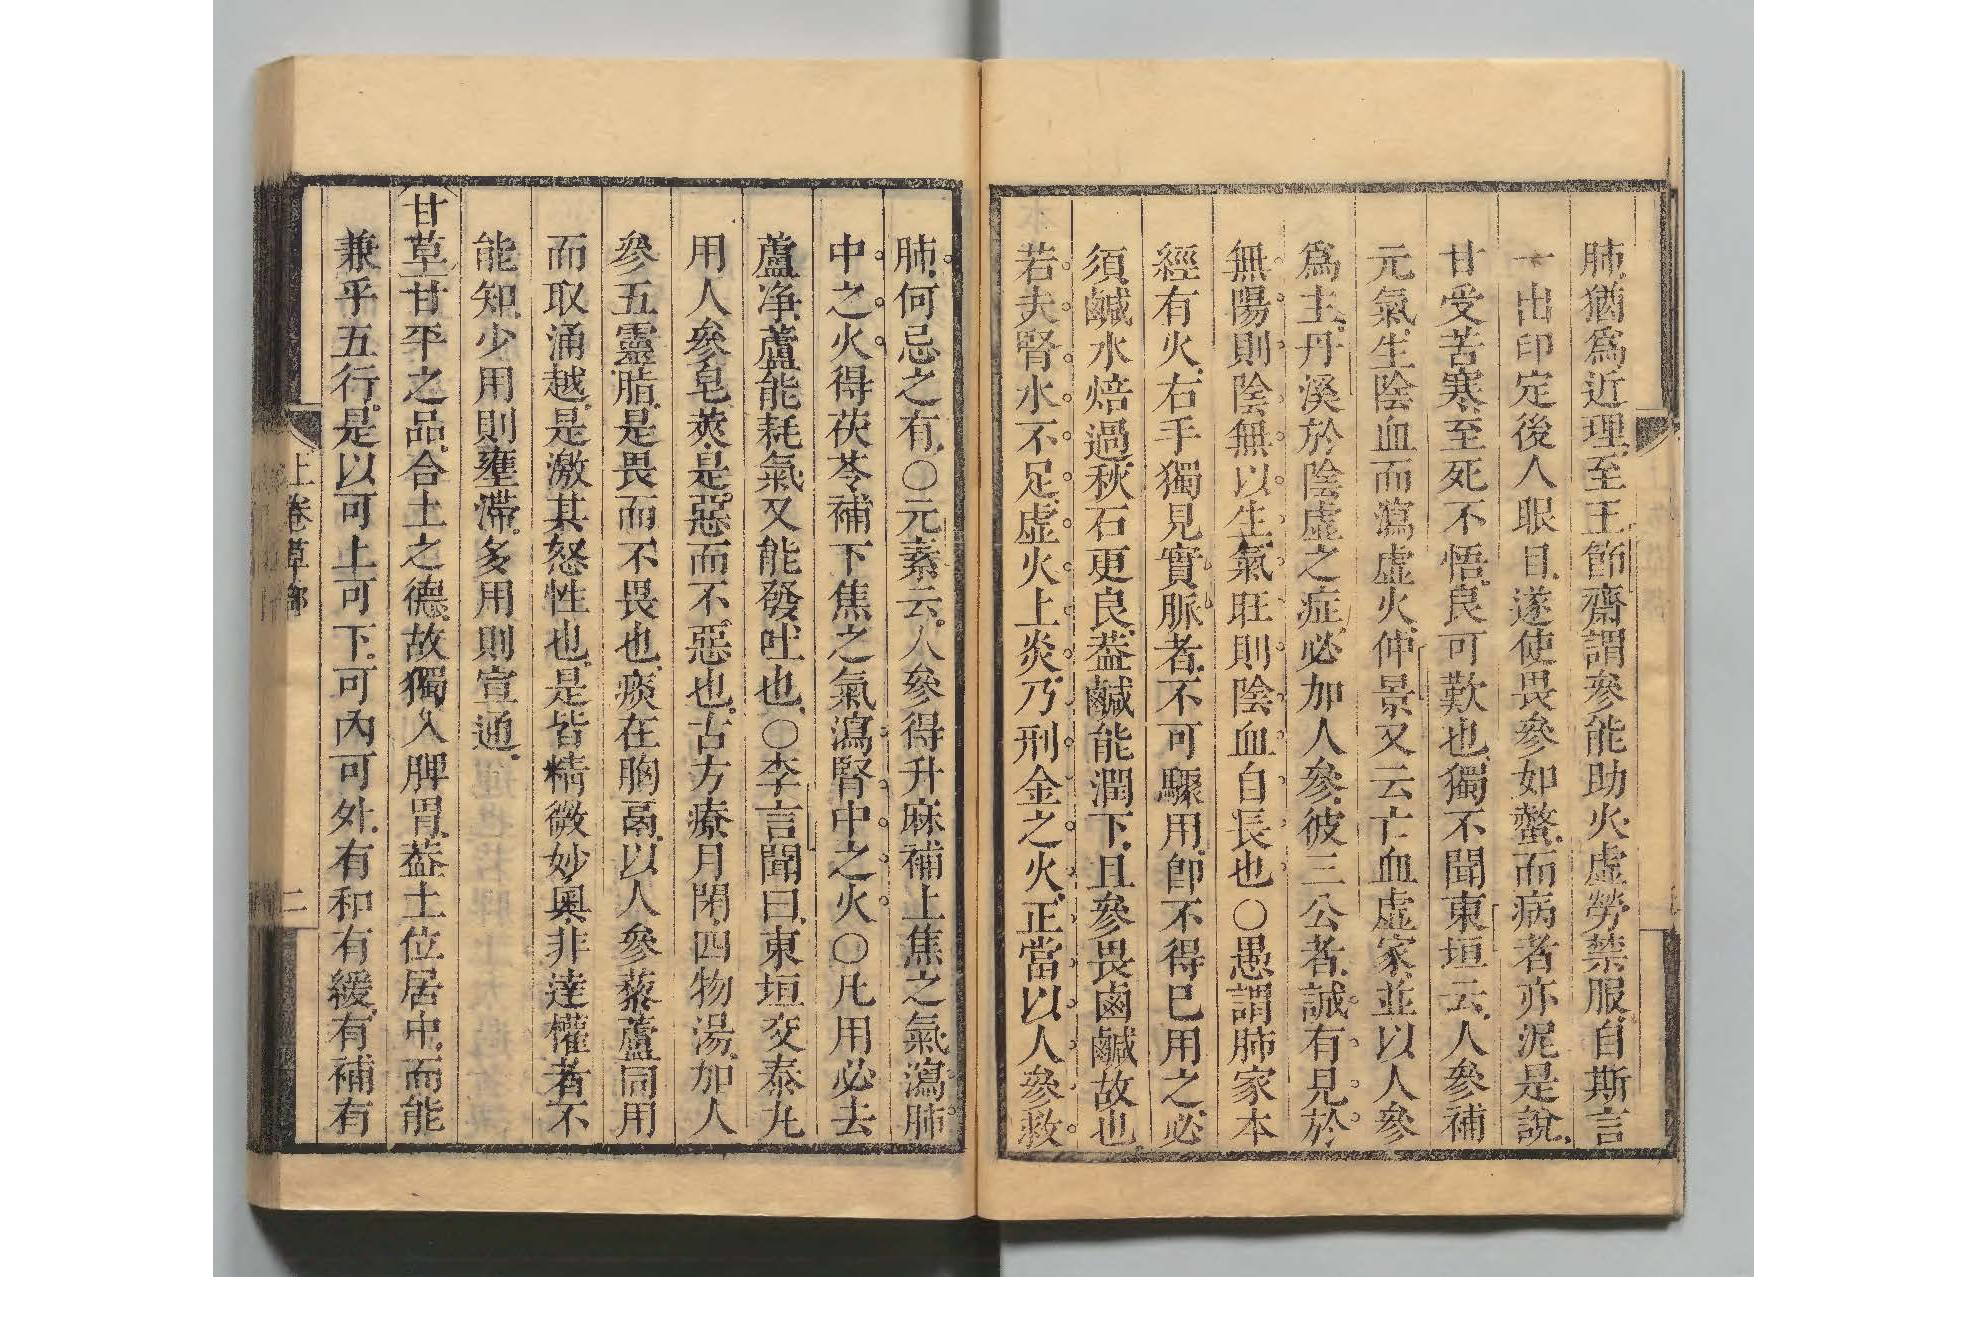 肺猶爲近理至王節齋謂參能助火虛勞禁服自斯言
一出印定後人眼目遂使畏參如螫而病者亦泥是說
甘受苦寒至死不悟良可歎也獨不聞東垣云人參補
元氣生陰血而瀉虛火仲景又云亡血虛家並以人參
爲主丹溪於陰虛之症必加人參彼三公者誠有見於
無陽則陰無以生氣旺則陰血自長也○愚謂肺家本
經有火右手獨見實脈者不可驟用即不得已用之必
須鹹水焙過秋石更良蓋鹹能潤下且參畏鹵鹹故也
若夫腎水不足虛火上炎乃刑金之火正當以人參救
肺何忌之有○元素云人參得升麻補上焦之氣瀉肺
中之火得茯苓補下焦之氣瀉腎中之火○凡用必去
蘆净蘆能耗氣又能發吐也○李言聞曰東垣交泰丸
用人參皂莢是惡而不惡也古方療月閉四物湯加人
參五靈脂是畏而不畏也痰在胸鬲以人參藜蘆同用
而取涌越是激其怒性也是皆精微妙奧非達權者不
能知少用則壅滯多用則宣通
甘草甘平之品合土之德故獨入脾胃葢土位居中而能
兼乎五行是以可上可下可內可外有和有緩有補有
上卷草部
二